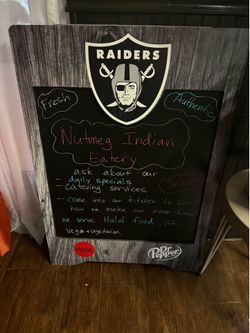 RAIDERS
Fresh
Authentic
Nutmeg Indian
Eatery
ask about our
- daily specials
- catering services
- come into our kitchen to see
how we make our naan
we serve Halal food, GF,
Vegan & Vegetarian
Dr Pepper